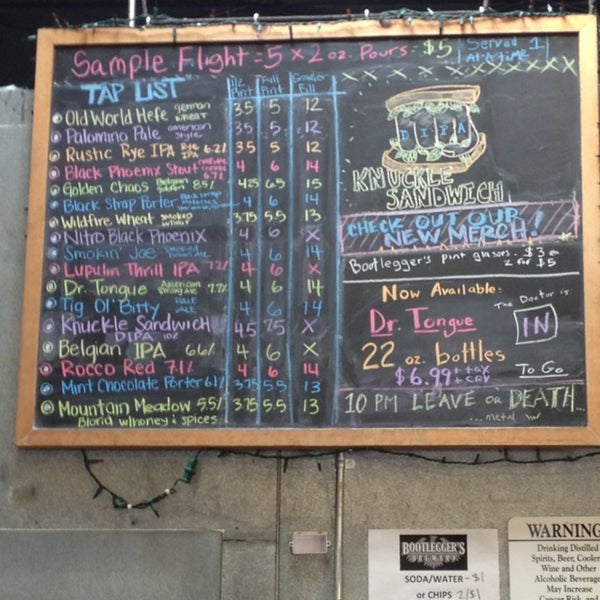 Sample Flight = 5 x 2 oz. Pours - $5
Served 1
At-A-Time
TAP LIST
1/2 Pint
Full Pint
Growler Fill
Old World Hefe german wheat 3.5 5 12
Palomino Pale american style 3.5 5 12
Rustic Rye IPA Rye IPA 6.2% 3.5 5 12
Black Phoenix Stout chipotle coffee 6.7% 4 6 14
Golden Chaos Belgian golden 8.5% 4.25 6.5 15
Black Strap Porter 4 6 14
Wildfire Wheat smoked wheat 3.75 5.5 13
Nitro Black Phoenix 4 6 X
Smokin' Joe 4 6 14
Lupulin Thrill IPA 7.2% 4 6 X
Dr. Tongue American 7.7% 4 6 14
Tig Ol' Bitty PALE ALE 4 6 14
Knuckle Sandwich DIPA 10% 4.5 7.5 X
Belgian IPA 6.6% 4 6 X
Rocco Red 7.1% 4 6 14
Mint Chocolate Porter 6.1% 3.75 5.5 13
Mountain Meadow 5.5% 3.75 5.5 13
Blond w/honey & spices
DIPA
KNUCKLE
SANDWICH
CHECK OUT OUR
NEW MERCH!
Bootlegger's pint glasses. $3 or
2 for $5
Now Available:
Dr. Tongue
The Doctor is:
IN
22 oz. bottles
$6.99 +tax
+CRV
To Go
10 PM LEAVE or DEATH...
...metal \m/
BOOTLEGGER'S
BREWERY
SODA/WATER - $1
or CHIPS 2/$1
WARNING
Drinking Distilled
Spirits, Beer, Cooler
Wine and Other
Alcoholic Beverage
May Increase
Cancer Risk, and